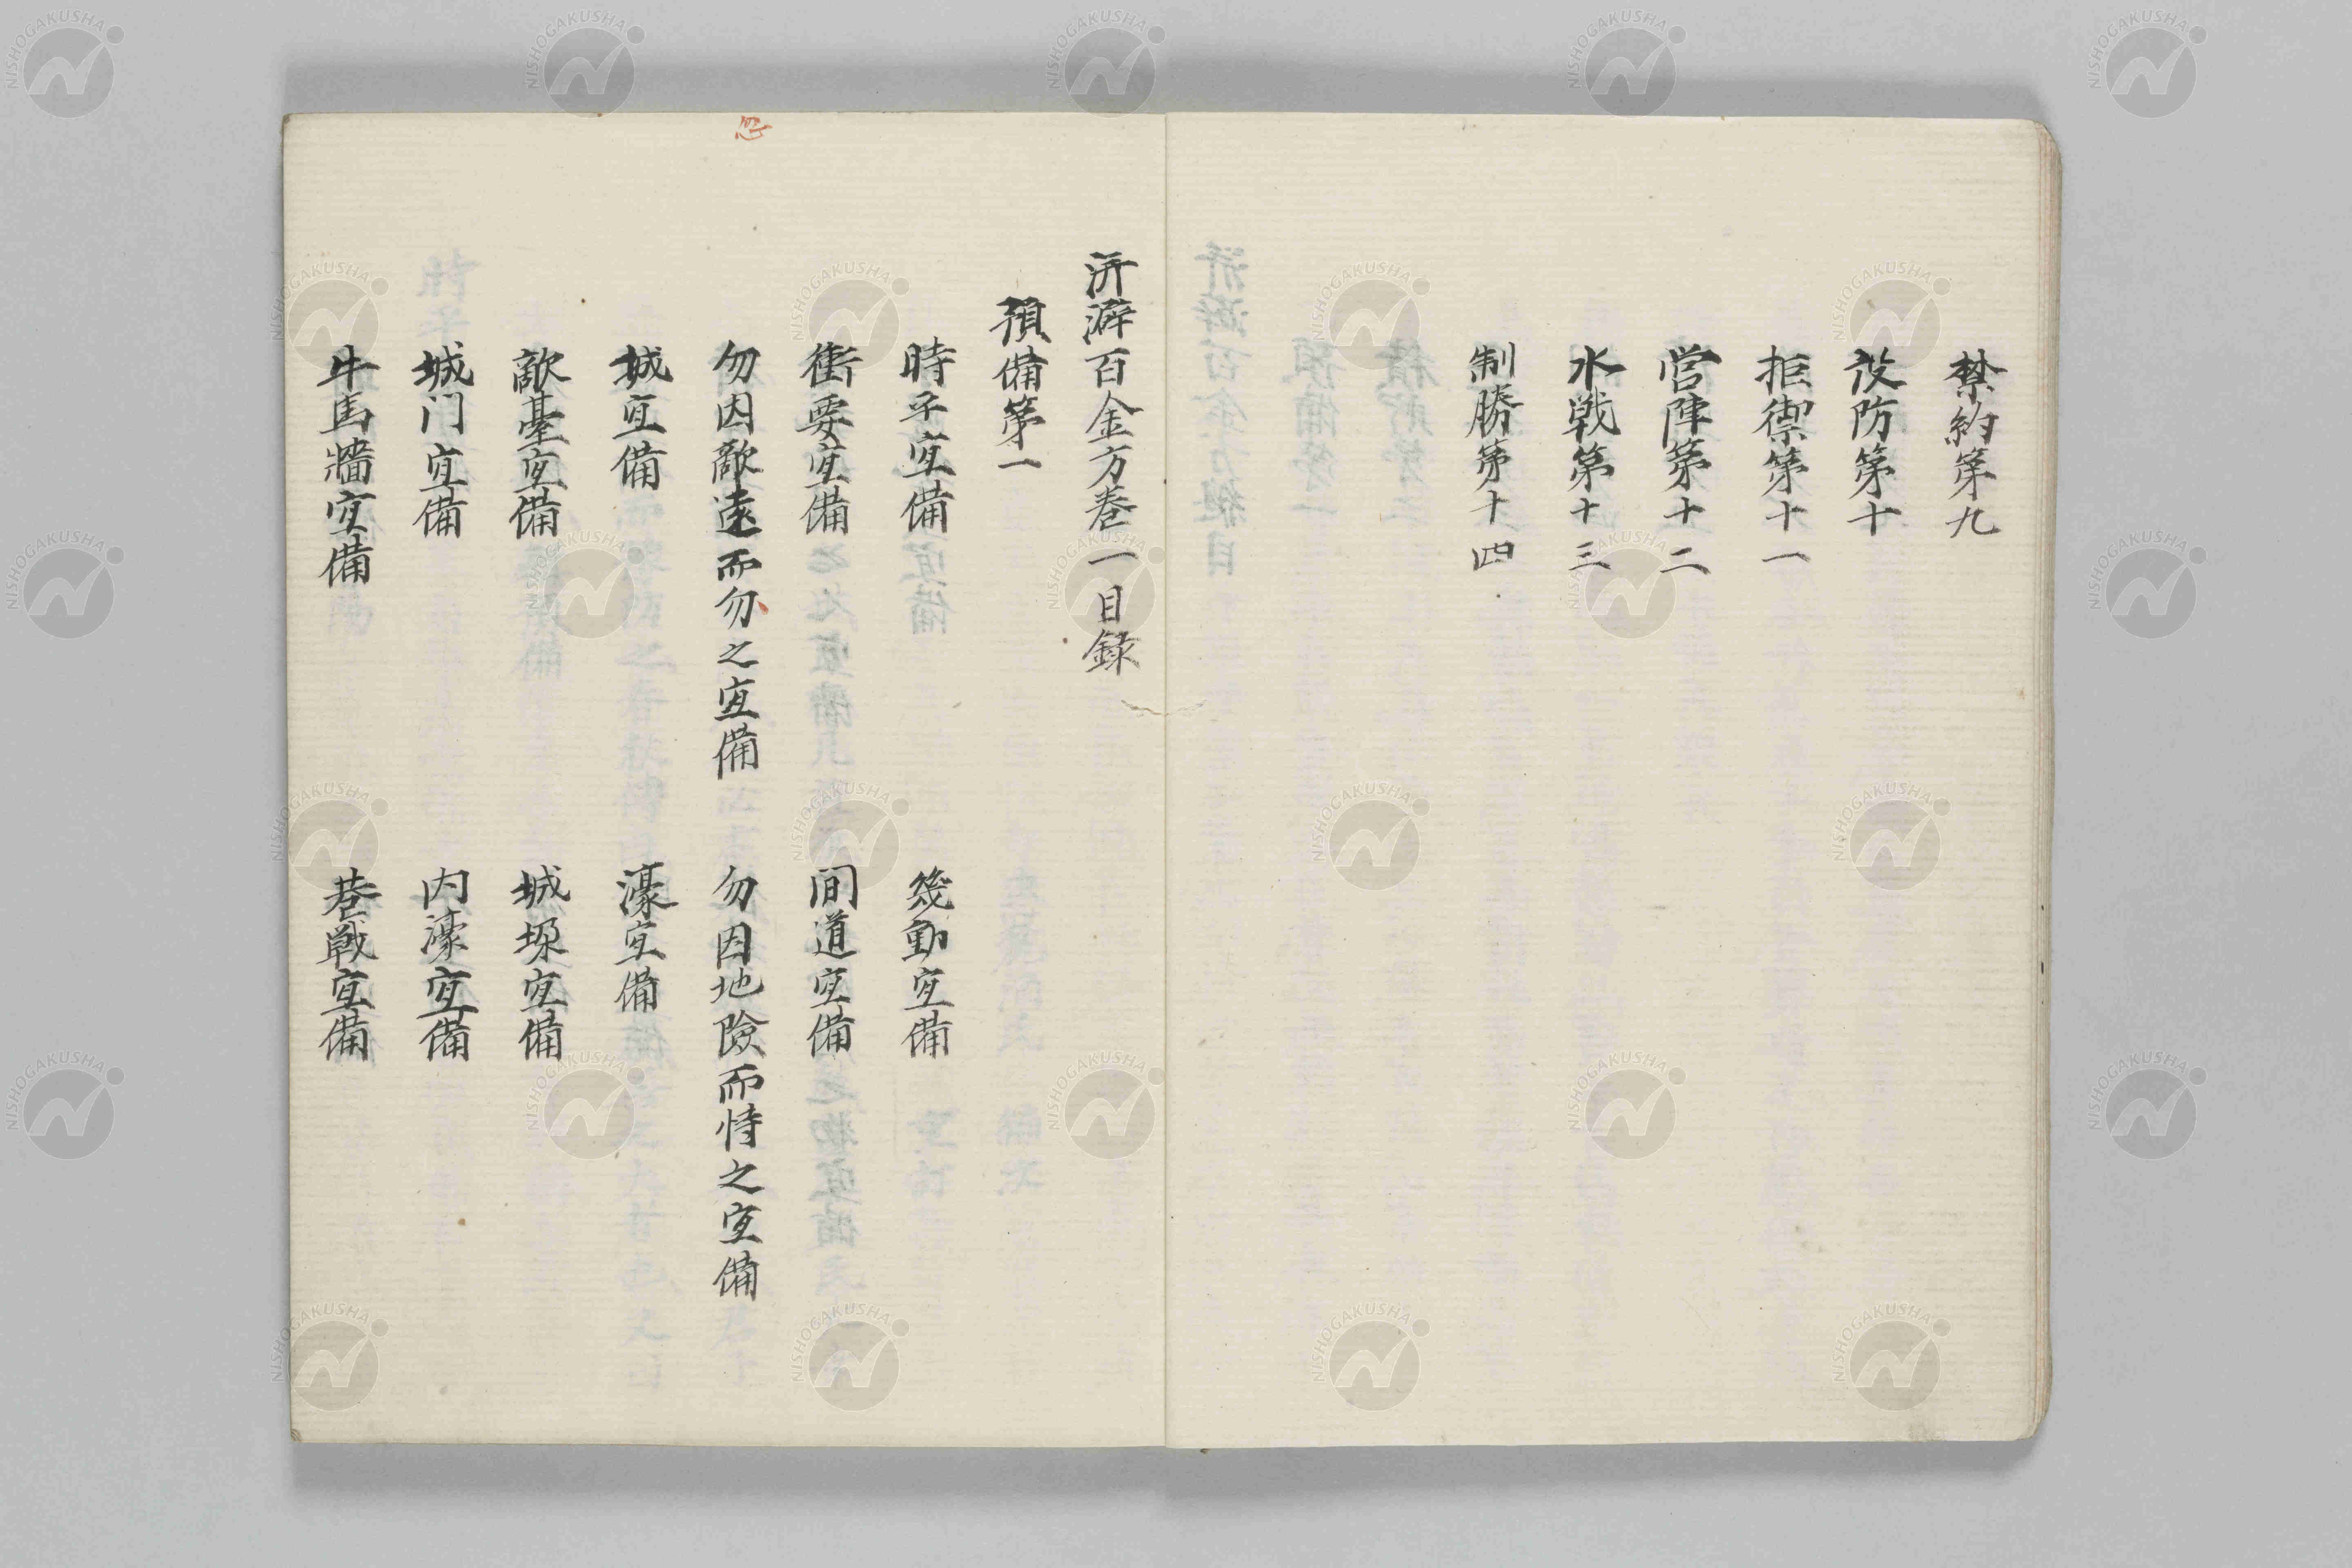 禁約第九
設防第十
拒禦第十一
営陣第十二
水戦第十三
制勝第十四
洴澼百金方巻一目錄
預備第一
時平宜備 幾動宜備
衝要宜備 間道宜備
勿因敵遠而勿之宜備 勿因地險而恃之宜備
忽
城宜備 濠宜備
敵臺宜備 城垜宜備
城门宜備 内濠宜備
牛馬牆宜備 巷戦宜備
NISHOGAKUSHA